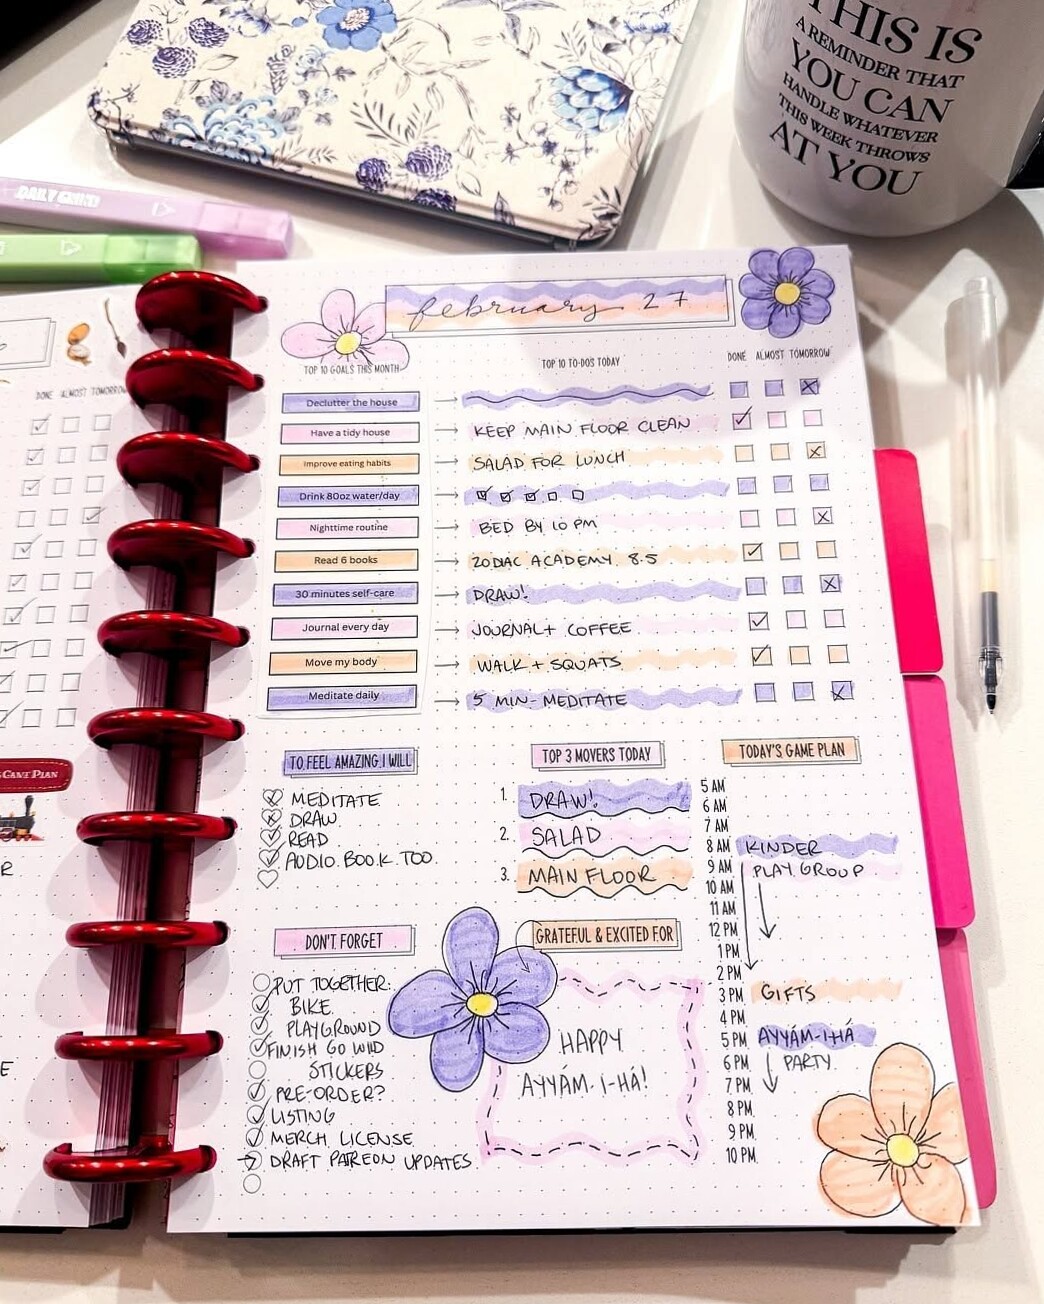 THIS IS
A REMINDER THAT
YOU CAN
HANDLE WHATEVER
THIS WEEK THROWS
AT YOU
DAILY GRIND
DONE ALMOST TOMORROW
GAME PLAN
R
E
february 27
TOP 10 GOALS THIS MONTH
TOP 10 TO-DOS TODAY
DONE ALMOST TOMORROW
Declutter the house
Have a tidy house KEEP MAIN FLOOR CLEAN
Improve eating habits SALAD FOR LUNCH
Drink 80oz water/day
Nighttime routine BED BY 10 PM
Read 6 books ZODIAC ACADEMY 8.5
30 minutes self-care DRAW!
Journal every day JOURNAL + COFFEE
Move my body WALK + SQUATS
Meditate daily 5 MIN-MEDITATE
TO FEEL AMAZING, I WILL
MEDITATE
DRAW
READ
AUDIO BOOK TOO
TOP 3 MOVERS TODAY
1. DRAW!
2. SALAD
3. MAIN FLOOR
TODAY'S GAME PLAN
5 AM
6 AM
7 AM
8 AM KINDER
9 AM PLAY GROUP
10 AM
11 AM
12 PM
1 PM
2 PM
3 PM GIFTS
4 PM
5 PM AYYÁM-I-HÁ
6 PM PARTY
7 PM
8 PM
9 PM
10 PM
DON'T FORGET
PUT TOGETHER:
BIKE
PLAYGROUND
FINISH GO WILD
STICKERS
PRE-ORDER?
LISTING
MERCH LICENSE
DRAFT PATREON UPDATES
GRATEFUL & EXCITED FOR
HAPPY
AYYÁM-I-HÁ!